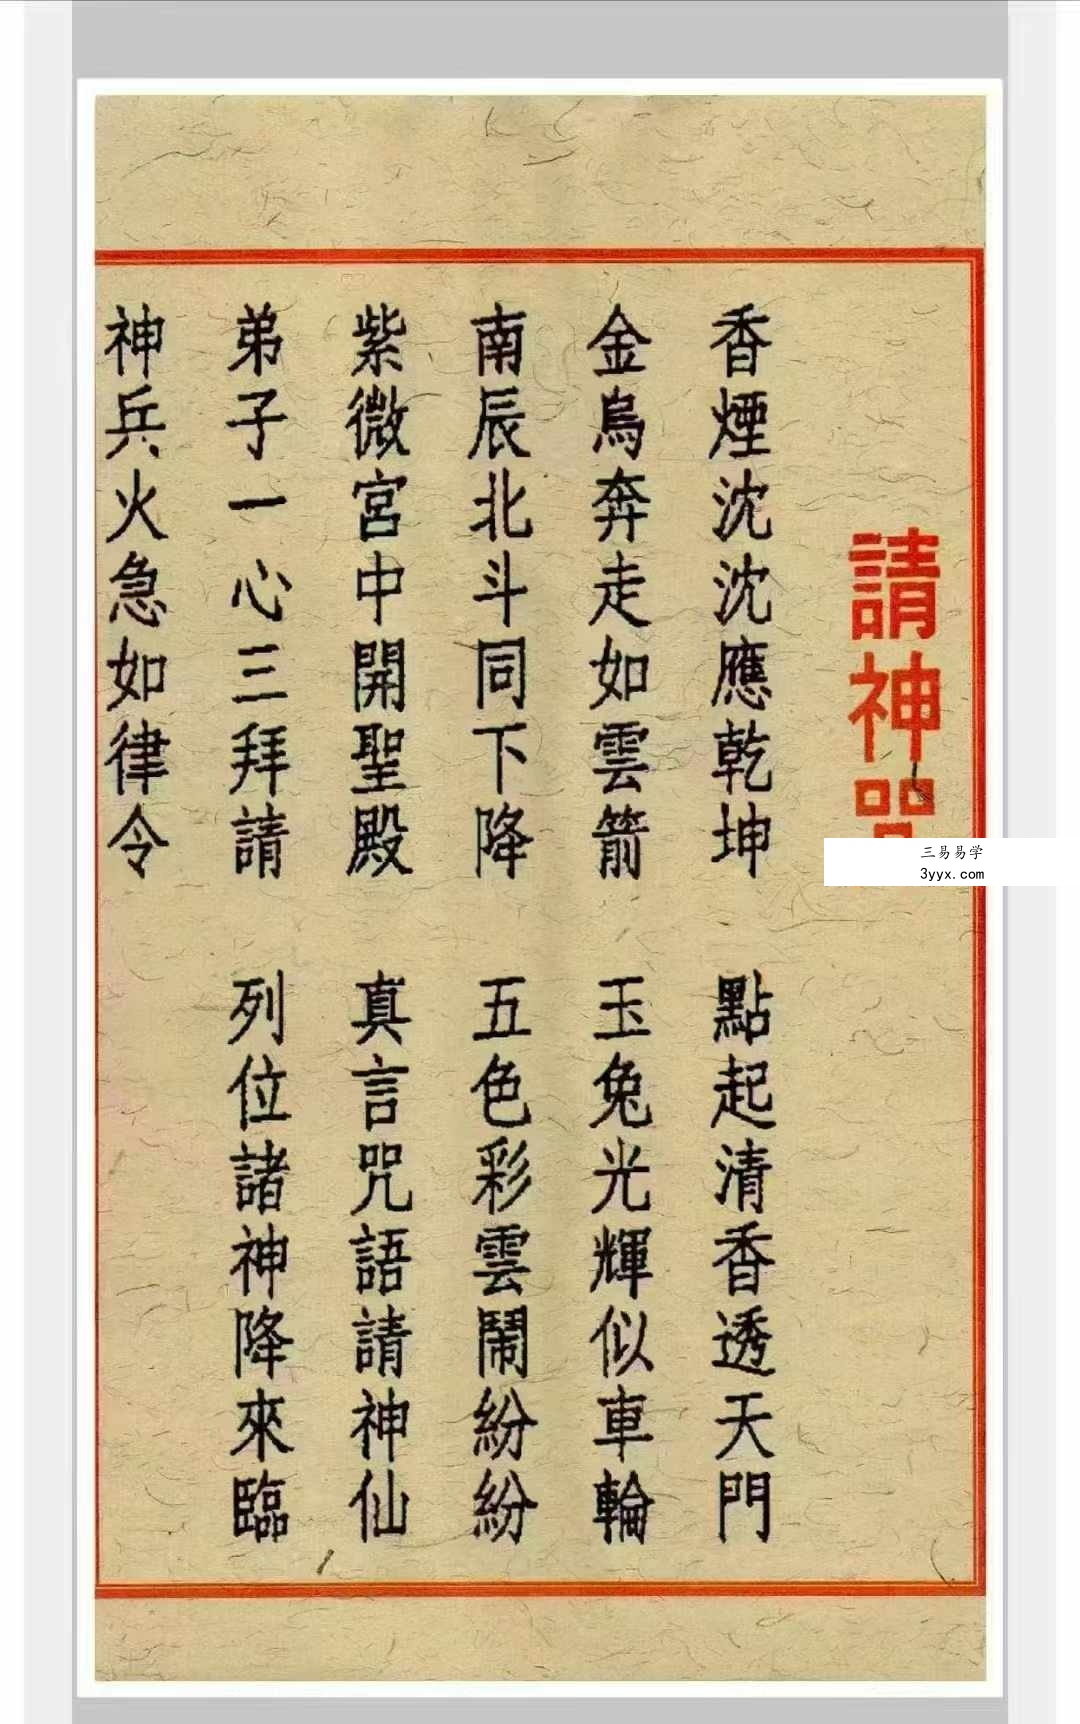 請神咒
三易易学
3yyx.com
香煙沈沈應乾坤 點起清香透天門
金烏奔走如雲箭 玉兔光輝似車輪
南辰北斗同下降 五色彩雲鬧紛紛
紫微宮中開聖殿 真言咒語請神仙
弟子一心三拜請 列位諸神降來臨
神兵火急如律令